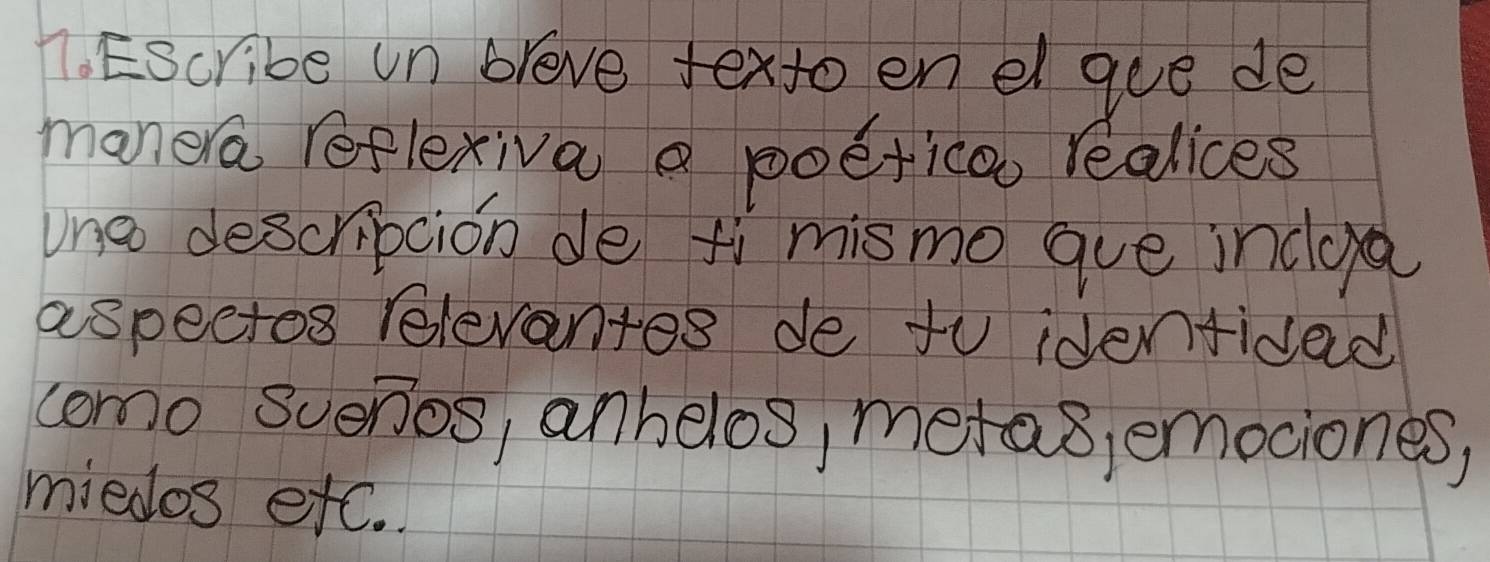 1. Escribe un breve texto en el que de
manera reflexiva o poética realices
una descripción de ti mismo que incluya
aspectos relevantes de tu identidad
como sueños, anhelos, metas, emociones,
miedos etc..